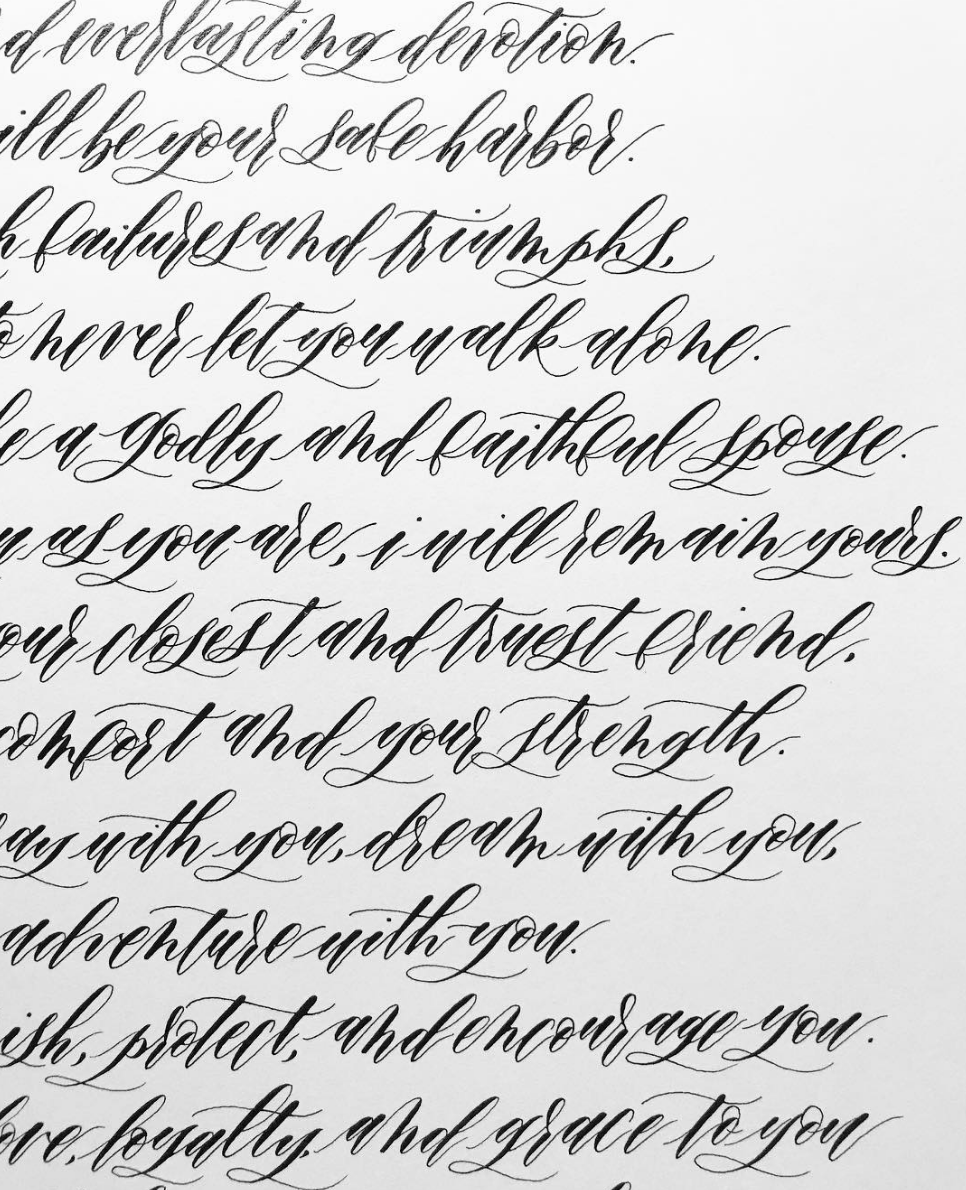 d everlasting devotion.
ill be your safe harbor.
h failures and triumphs,
to never let you walk alone.
e a godly and faithful spouse.
as you are, i will remain yours.
our closest and truest friend,
comfort and your strength.
ay with you, dream with you,
adventure with you.
ish, protect, and encourage you.
ove, loyalty, and grace to you